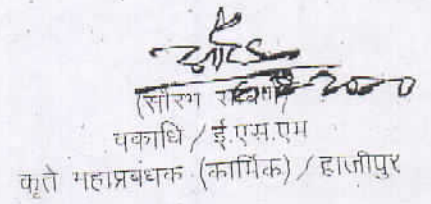 (सौरभ
वकाधि / ई.एस.एम
कृते महाप्रबंधक (कार्मिक) / हाजीपुर